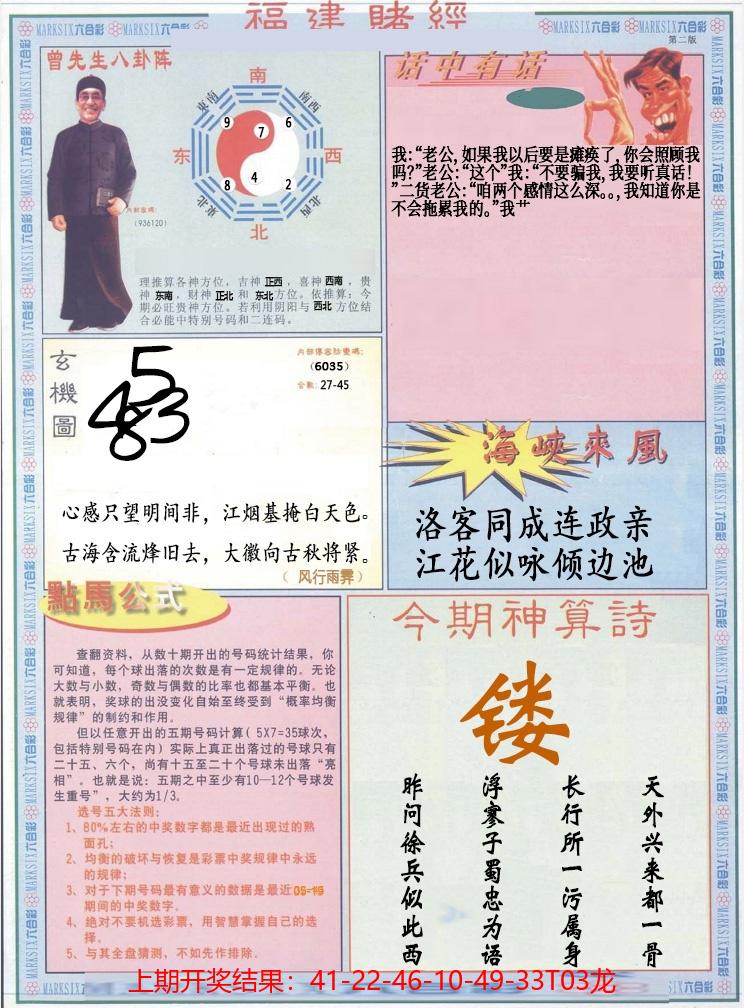 福建賭經
MARKSIX六合彩
第二版
曾先生八卦阵
南
东南
南西
9
7
6
东
西
8
4
2
東北
北西
北
内部密碼:
(936120)
理推算各神方位，吉神 正西 ，喜神 西南 ，贵
神 东南 ，财神 正北 和 东北 方位。依推算：今
期必旺贵神方位。若利用阴阳与 西北 方位结
合必能中特别号码和二连码。
话中有话
我:“老公,如果我以后要是瘫痪了,你会照顾我
吗?”老公:“这个”我:“不要骗我,我要听真话!
”二货老公:“咱两个感情这么深。。,我知道你是
不会拖累我的。”我艹
玄機圖
5
483
8
内部傳密防雙碼:
(6035)
合数: 27-45
心感只望明间非，江烟基掩白天色。
古海含流烽旧去，大徽向古秋将紧。
（ 风行雨霁 ）
海峽來風
洛客同成连政亲
江花似咏倾边池
點馬公式
查翻资料，从数十期开出的号码统计结果，你
可知道，每个球出落的次数是有一定规律的。无论
大数与小数，奇数与偶数的比率也都基本平衡。也
就表明，奖球的出没变化自始至终受到“概率均衡
规律”的制约和作用。
但以任意开出的五期号码计算( 5X7=35球次，
包括特别号码在内) 实际上真正出落过的号球只有
二十五、六个，尚有十五至二十个号球未出落“亮
相”。也就是说：五期之中至少有10—12个号球发
生重号”，大约为1/3。
选号五大法则：
1、80%左右的中奖数字都是最近出现过的熟
面孔；
2、均衡的破坏与恢复是彩票中奖规律中永远
的规律；
3、对于下期号码最有意义的数据是最近05-19
期间的中奖数字。
4、绝对不要机选彩票，用智慧掌握自己的选
择。
5、与其全盘猜测，不如先作排除．
今期神算詩
镂
天外兴来都一骨
长行所一污属身
浮寥子蜀忠为语
昨问徐兵似此西
上期开奖结果：41-22-46-10-49-33T03龙